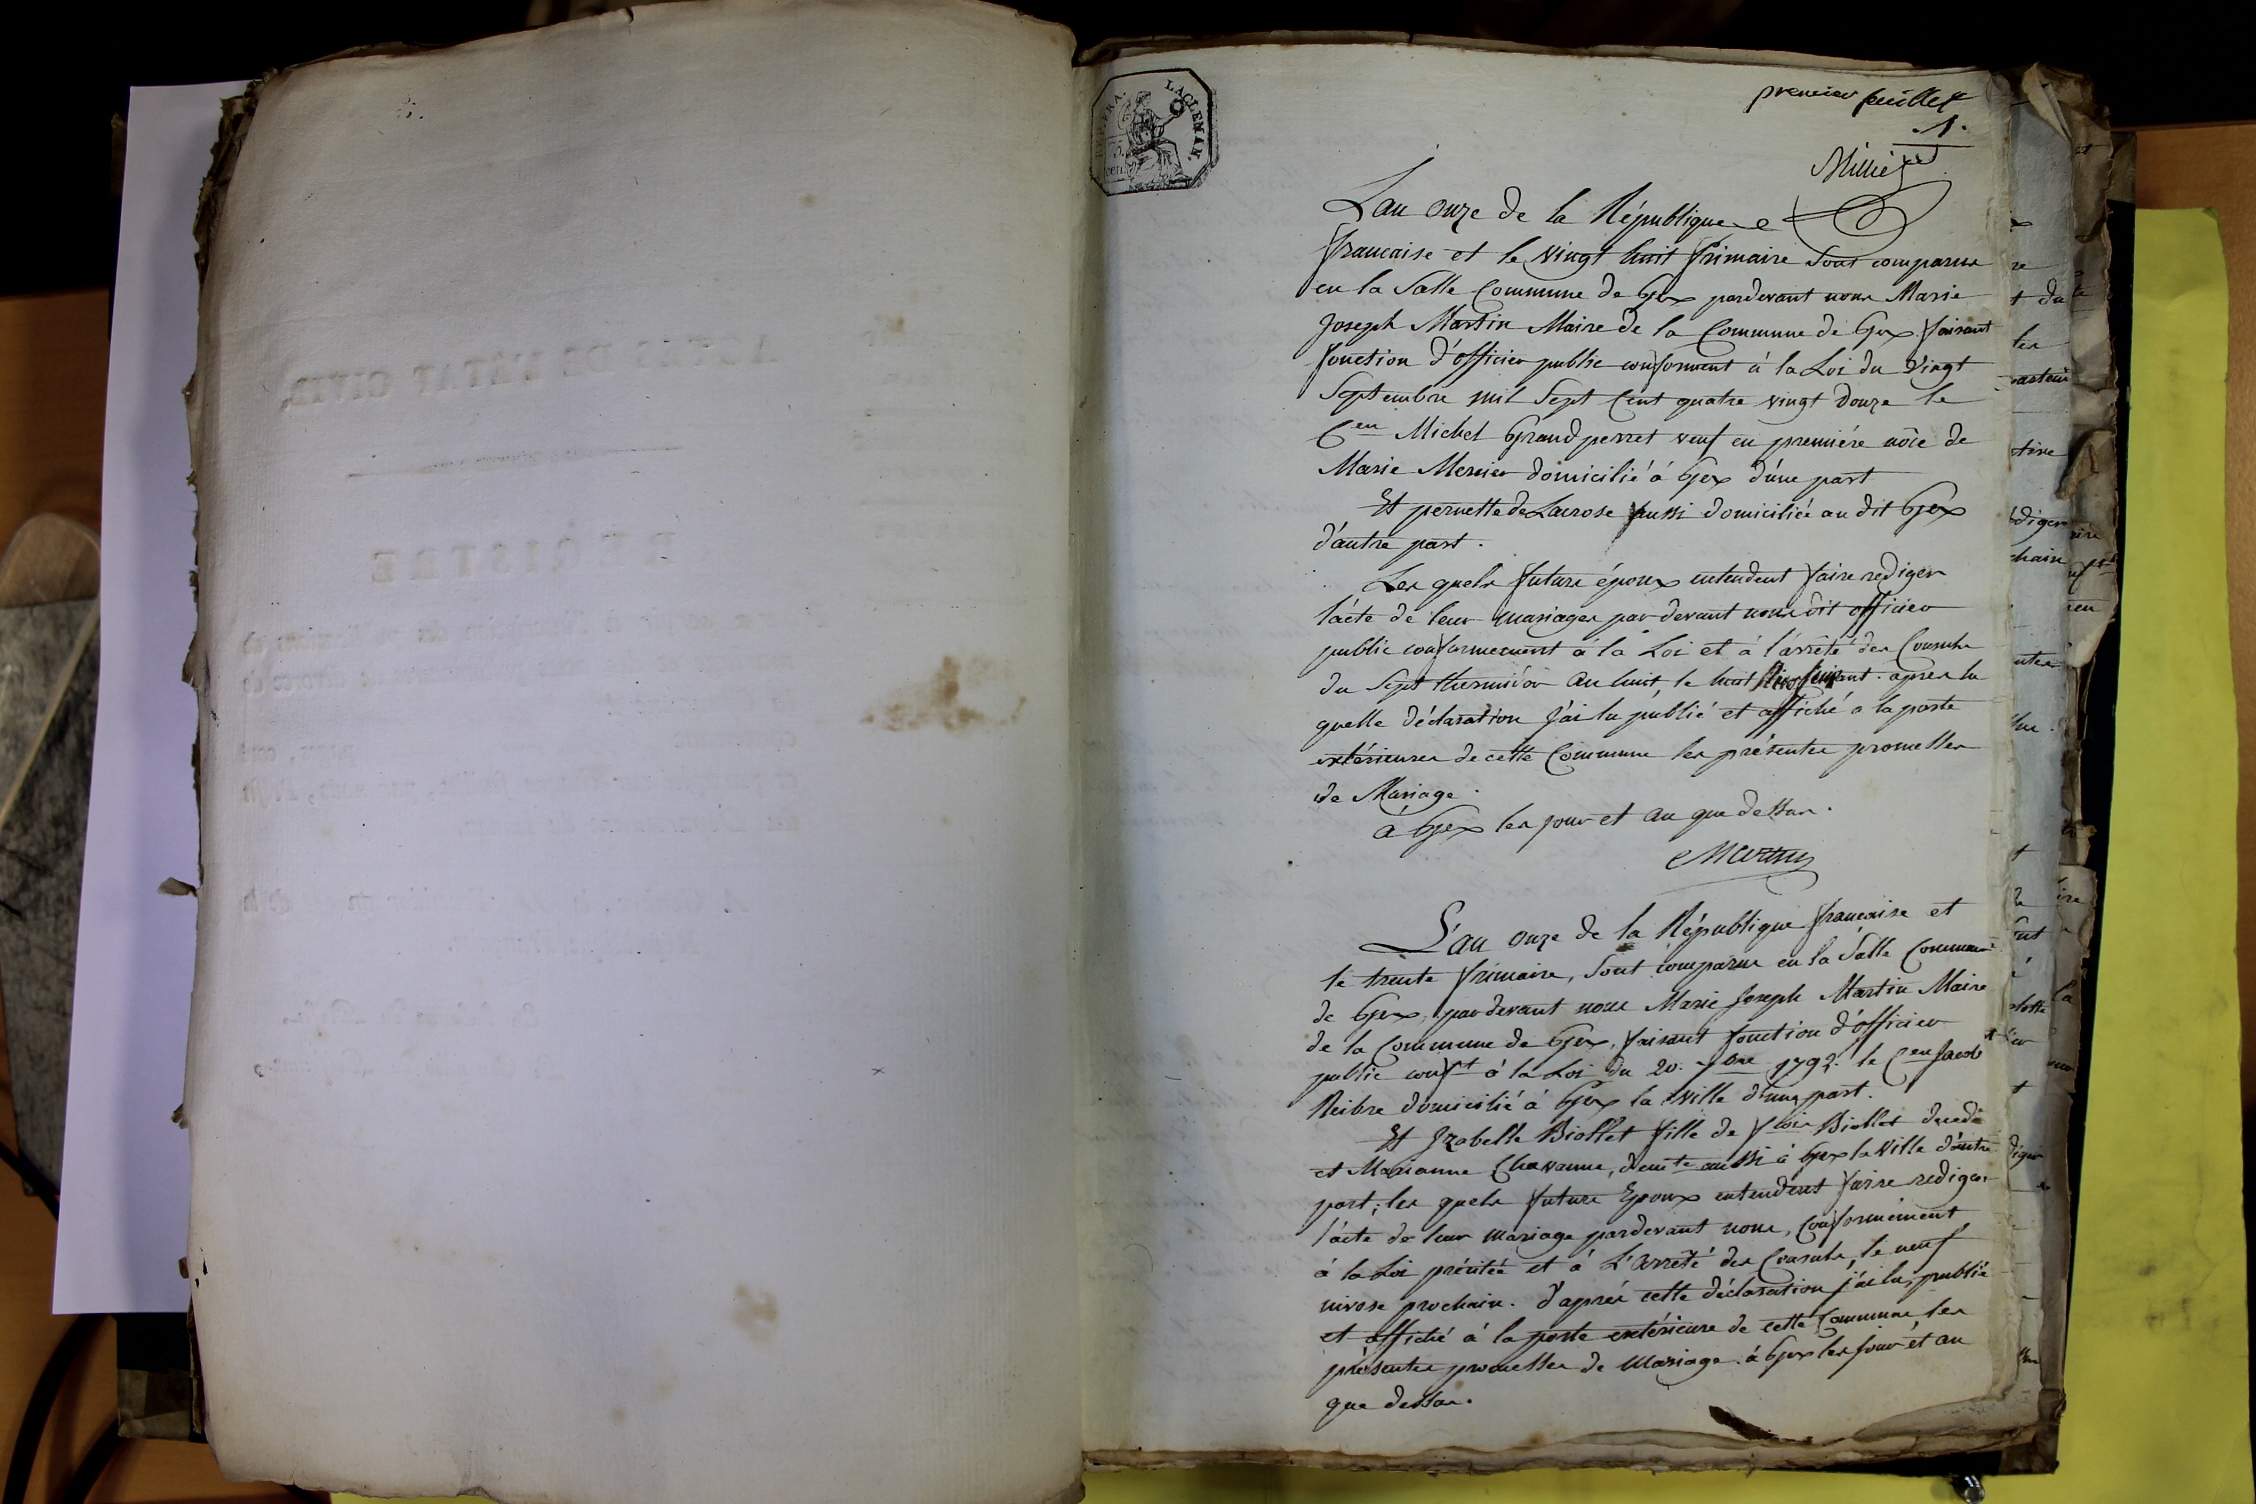 ACTES DE L'ÉTAT CIVIL.
REGISTRE
LA CLEMAN.
premier feuillet
.1.
L'an onze de la République
francaise et le vingt huit frimaire sont comparus
en la Salle Commune de Gex pardevant nous Marie
Joseph Martin Maire de la Commune de Gex faisant
fonction d'officier public conforment à la Loi du Vingt
Septembre mil Sept Cent quatre vingt douze le
Cen Michel Grandperret veuf en premiére nôce de
Marie Mernier domicilié à Gex d'une part
Et pernette deLacrose aussi domiciliée au dit Gex
d'autre part.
Les quels futurs époux entendent faire rediger
l'acte de leur mariages par devant nous dit officier
public conformement à la Loi et à l'arrêté des Consuls
du Sept thermidor an huit, le huit . après la
quelle déclaration j'ai lu publié et affiché a la porte
extérieures de cette Commune les présentes promesses
de Mariage.
à Gex les jour et an que dessus.
Martin
L'an onze de la République francaise et
le trente frimaire, sont comparus en la Salle Commune
de Gex, pardevant nous Marie Joseph Martin Maire
de la Commune de Gex, faisant fonction d'officier
public conft à la Loi du 20. 7bre 1792. le Cen Jacob
Reibre domicilié à Gex la ville d'une part.
Et Izabelle Biollet fille de fcois Biollet decedé
et Marianne Chavanne, demte aussi à Gex la Ville d'autre
part; les quels futurs Epoux entendent faire rediger
l'acte de leur mariage pardevant nous, conformément
à la Loi précitée et à L'Arrêté des Consuls, le neuf
nivose prochain. d'après cette déclaration j'ai lu, publié
et affiché à la porte extérieure de cette Commune les
présentes promesses de Mariage. à Gex les jour et an
que dessus.